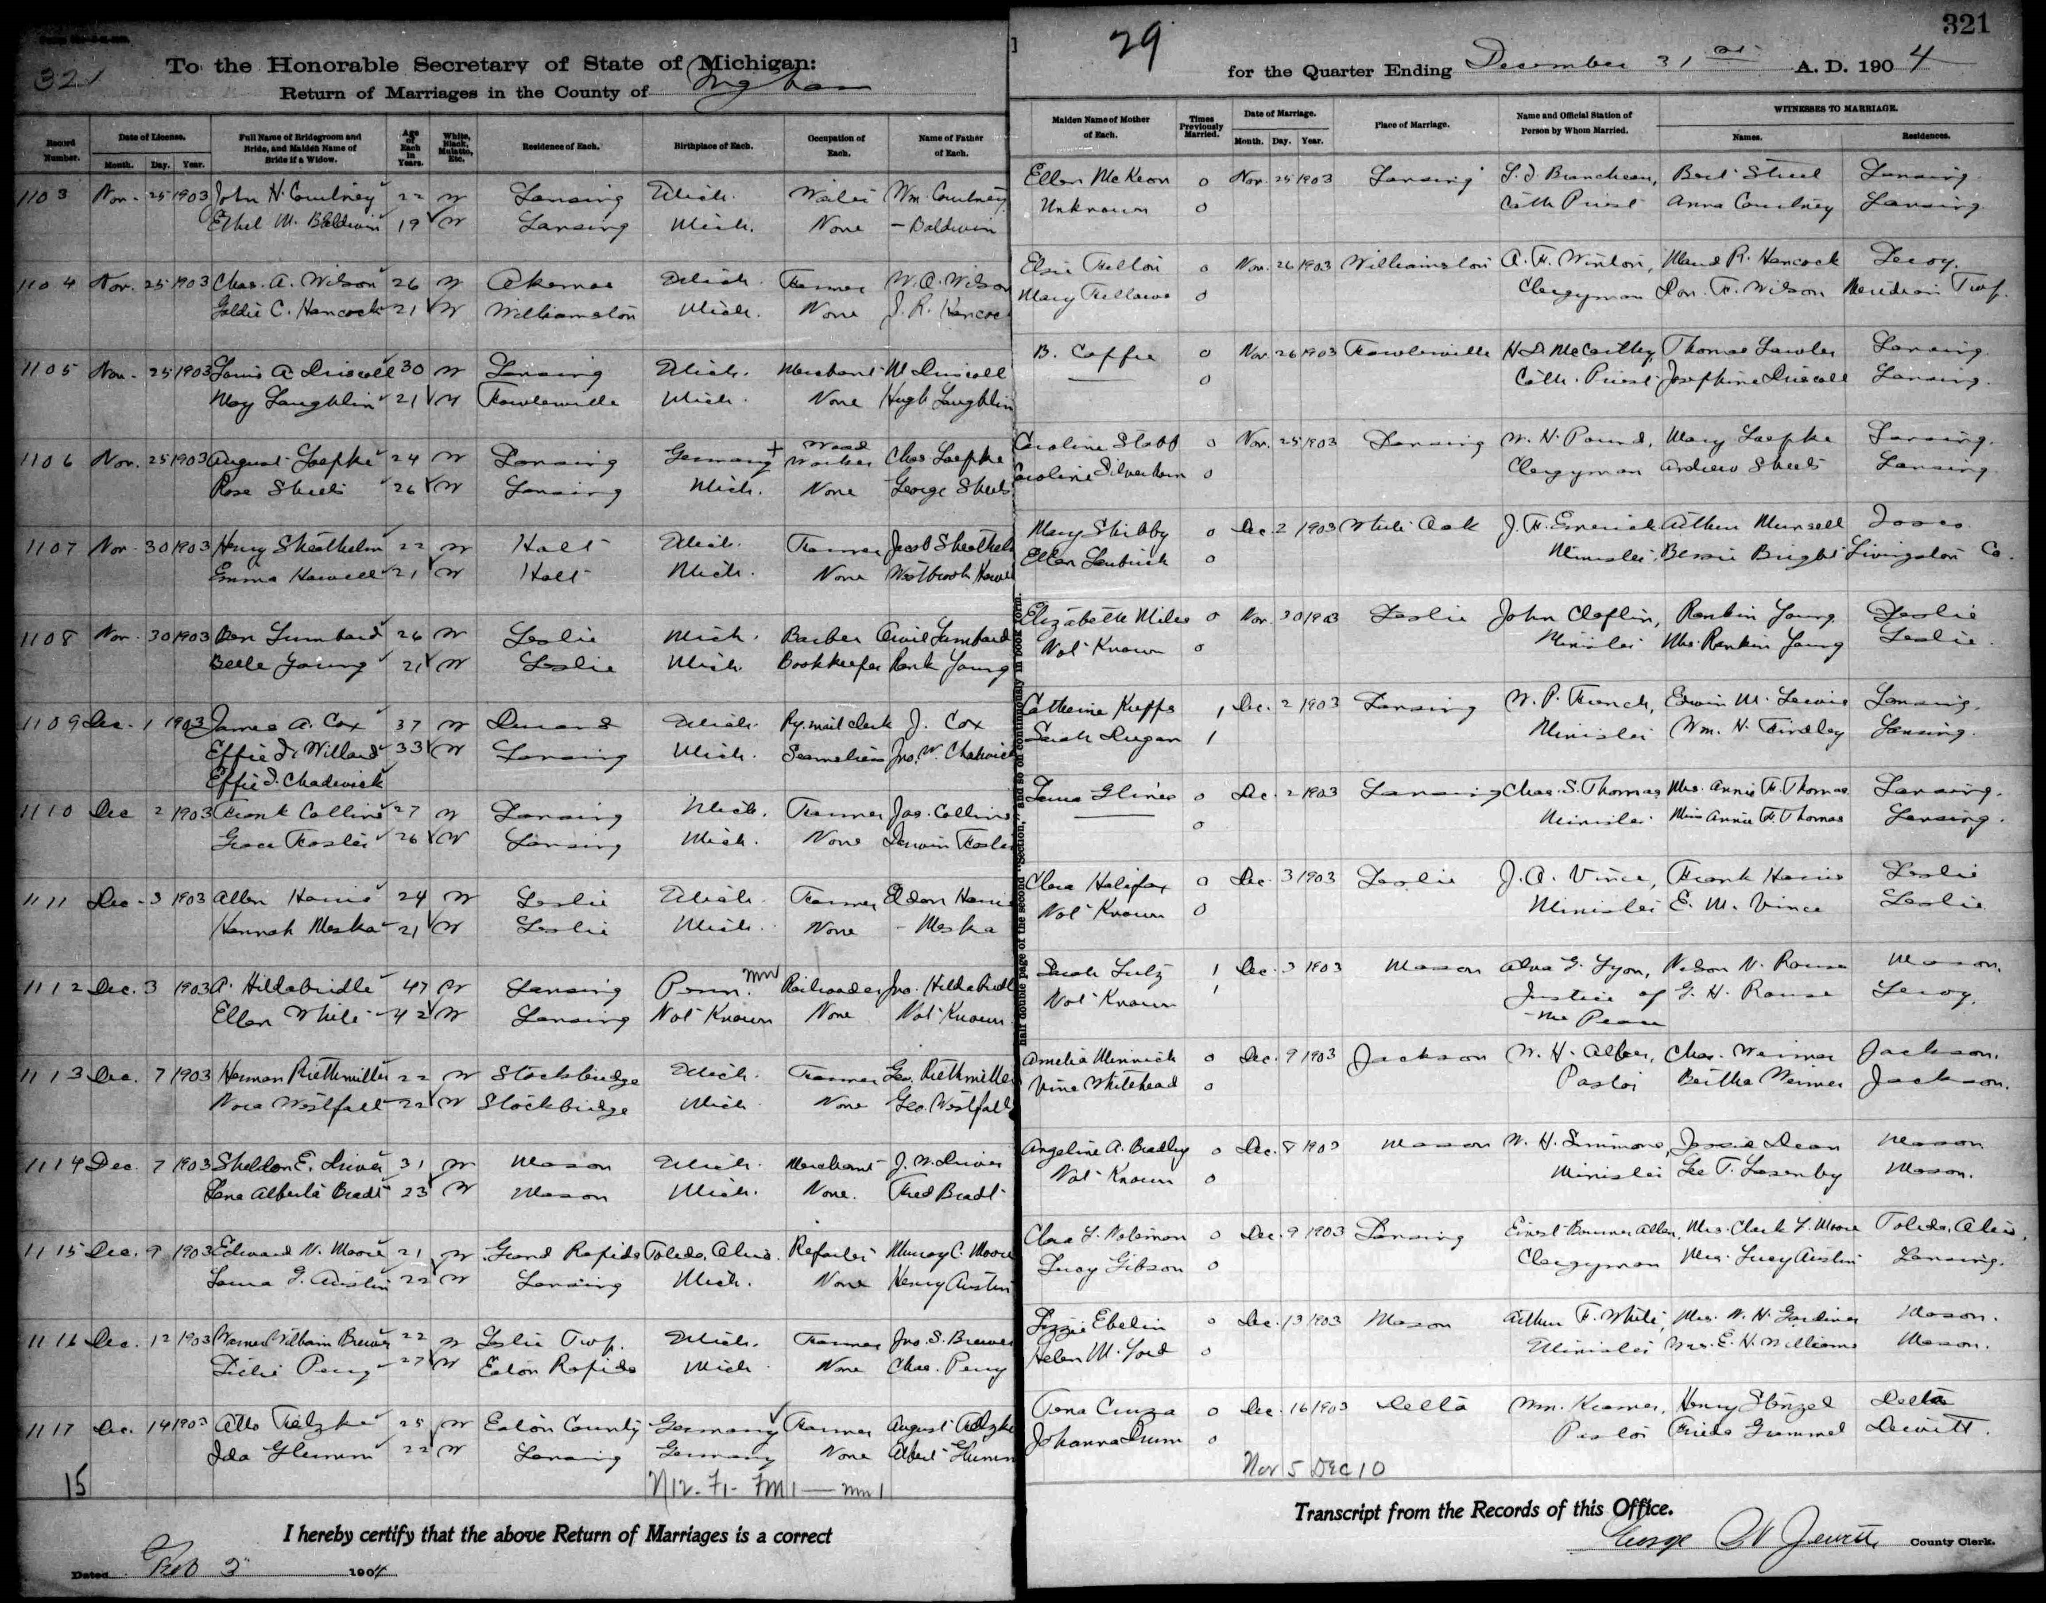 321
To the Honorable Secretary of State of Michigan:
Return of Marriages in the County of Ingham
29
321
for the Quarter Ending December 31st A. D. 1904
Record Number.
Date of License.
Month. Day. Year.
Full Name of Bridegroom and Bride, and Maiden Name of Bride if a Widow.
Age of Each in Years.
White, Black, Mulatto, Etc.
Residence of Each.
Birthplace of Each.
Occupation of Each.
Name of Father of Each.
Maiden Name of Mother of Each.
Times Previously Married.
Date of Marriage.
Month. Day. Year.
Place of Marriage.
Name and Official Station of Person by Whom Married.
WITNESSES TO MARRIAGE.
Names. Residences.
1103 Nov. 25 1903 John H. Courtney 22 W Lansing Mich. Wm. Courtney Ellen McKeon 0 Nov. 25 1903 Lansing Lansing
Ethel M. Baldwin 19 W Lansing Mich. None - Baldwin Unknown 0 Cath Priest Anna Courtney Lansing
1104 Nov. 25 1903 Chas. A. Wilson 26 W Okemos Mich. Farmer W. A. Wilson Elsie 0 Nov. 26 1903 Williamston A. F. Winton, Maud R. Hancock Leroy.
Goldie C. Hancock 21 W Williamston Mich. None J. R. Hancoc Mary Fellows 0 Clergyman Don. F. Wilson Meridian Twp.
1105 Nov. 25 1903 Louis A Driscoll 30 W Lansing Mich. Merchant M Driscoll B. Coffie 0 Nov. 26 1903 Fowlerville H D McCarthy, Thomas Lawler Lansing
May Laughlin 21 W Fowlerville Mich. None Hugh Laughlin 0 Cath. Priest Josephine Driscoll Lansing.
1106 Nov. 25 1903 August Loepke 24 W Lansing Germany + Wood Worker Chas Loepke Caroline 0 Nov. 25 1903 Lansing W. H. Pound, Mary Loepke Lansing.
Rose Sheets 26 W Lansing Mich. None George Sheets Caroline 0 Clergyman Andrew Sheets Lansing
1107 Nov. 30 1903 Henry Sheathelm 22 W Holt Mich. Farmer Jacob Sheathel Mary 0 Dec. 2 1903 White Oak J. F. Emerick Arthur Munsell Iosco
Emma Howell 21 W Holt Mich. None Westbrook Howell Ellen 0 Minister Bessie Bright Livingston Co.
1108 Nov. 30 1903 Ben Lumbard 26 W Leslie Mich. Barber Lumbard Elizabeth Miles 0 Nov. 30 1903 Leslie John Claflin, Rankin Young Leslie
Belle Young 21 W Leslie Mich. Bookkeeper Rank Young Not Known 0 Minister Mrs Rankin Young Leslie
1109 Dec. 1 1903 James A. Cox 37 W Durand Mich. Ry. mail clerk J. Cox Catherine 1 Dec. 2 1903 Lansing W. P. French, Edwin M. Lewis Lansing.
Effie D. Willard 33 W Lansing Mich. Jno. W. Chadwick Sarah Dugan 1 Minister Wm. H. Findley Lansing.
Effie D. Chadwick
1110 Dec 2 1903 Frank Collins 27 W Lansing Mich. Farmer Jas. Collins 0 Dec. 2 1903 Lansing Chas. S. Thomas Mrs. Annie F. Thomas Lansing.
Grace Foster 26 W Lansing Mich. None 0 Minister Miss Annie F. Thomas Lansing.
1111 Dec. 3 1903 Allen Harris 24 W Leslie Mich. Farmer Eldon Harri Clara Halifax 0 Dec. 3 1903 Leslie J. A. Vince, Frank Harris Leslie
Hannah Meska 21 W Leslie Mich. None - Meska Not Known 0 Minister E. M. Vince Leslie
1112 Dec. 3 1903 A. Hildabridle 47 W Lansing Penn. mw Railroader Jno. Hildabridl Sarah Lutz 1 Dec. 3 1903 Mason Alva G. Lyon, Nelson N. Rouse Mason.
Ellen White 42 W Lansing Not Known None Not Known Not Known 1 Justice of G. H. Rouse Leroy.
the Peace
1113 Dec. 7 1903 Herman Riethmiller 22 W Stockbridge Mich. Farmer Geo. Riethmiller Amelia Minnick 0 Dec. 9 1903 Jackson W. H. Alber, Chas. Weimer Jackson.
Nora Westfall 22 W Stockbridge Mich. None Geo. Westfall Vine Whitehead 0 Pastor Bertha Weimer Jackson.
1114 Dec. 7 1903 Sheldon E. Driver 31 W Mason Mich. Merchant J. W. Driver Angeline A. Bradley 0 Dec. 8 1903 Mason W. H. Simmons, Jessie Dean Mason
Lena Alberta Bradt 23 W Mason Mich. None. Fred Bradt Not Known 0 Minister Lee T. Lasenby Mason.
1115 Dec. 9 1903 Edward N. Moore 21 W Grand Rapids Toledo, Ohio. Reporter Murray C. Moore Clara L. 0 Dec. 9 1903 Lansing Ernest Bourner Allen, Mrs. Clark L. Moore Toledo, Ohio.
Laura G. Austin 22 W Lansing Mich. None Henry Austin Lucy Gibson 0 Clergyman Mrs. Lucy Austin Lansing.
1116 Dec. 12 1903 Warner William Brewer 22 W Leslie Twp. Mich. Farmer Jno. S. Brewer Lizzie Ebelin 0 Dec. 13 1903 Mason Arthur F. White, Mrs. W. H. Gardner Mason.
Perry 27 W Eaton Rapids Mich. None Chas. Perry Helen M. Lord 0 Minister Mrs. E. H. Williams Mason.
1117 Dec. 14 1903 Otto 25 W Eaton County Germany Farmer August 0 Dec. 16 1903 Delta Wm. Kramer, Henry Stenzel Delta
Ida Glumm 22 W Lansing Germany None Albert Glumm Johanna 0 Pastor Frieda Grammel Dewitt.
15
N12. F1- FM1 — mw1
Nov 5 DEC 10
half double page of the second "Section," and so on continuously in book form.
I hereby certify that the above Return of Marriages is a correct
Transcript from the Records of this Office.
Dated Feb 3 1904
George W Jewett County Clerk.